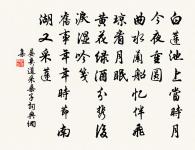 白蓮池上當時月
今夜重圓
曲水蘭船憶伴飛
瓊看月眠
黃花綠酒分攜後
淚濕吟箋
舊事年年時節南
湖又采蓮
晏幾道采桑子詞典網
集